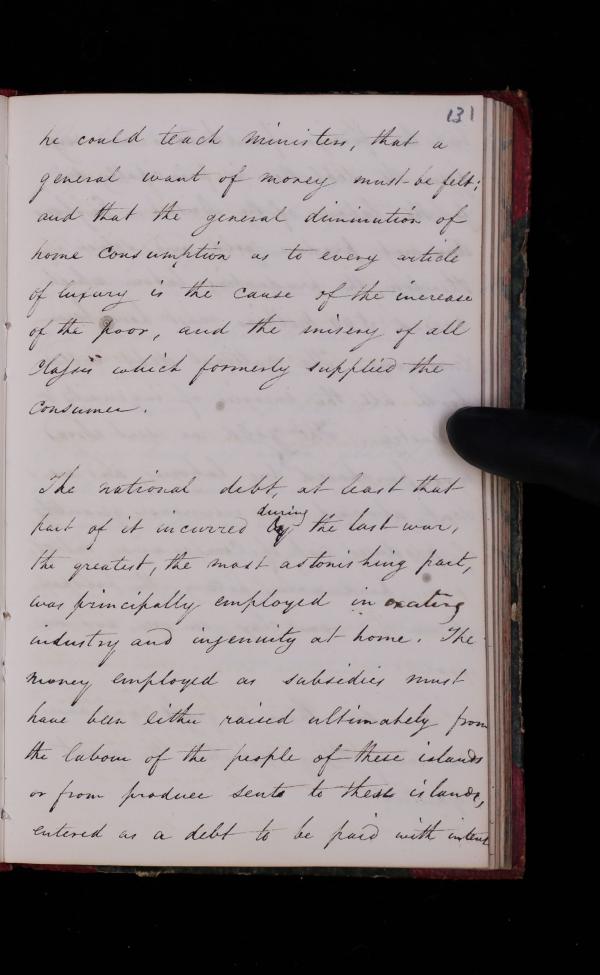 131
he could teach ministers, that a
general want of money must be felt;
and that the general diminution of
home consumption as to every article
of luxury is the cause of the increase
of the poor, and the misery of all
classes which formerly supplied the
consumer.
The national debt, at least that
during
part of it incurred by the last war,
the greatest, the most astonishing part,
was principally employed in exciting
industry and ingenuity at home. The
money employed as subsidies must
have been either raised ultimately from
the labour of the people of these islands
or from produce sent to these islands,
entered as a debt to be paid with